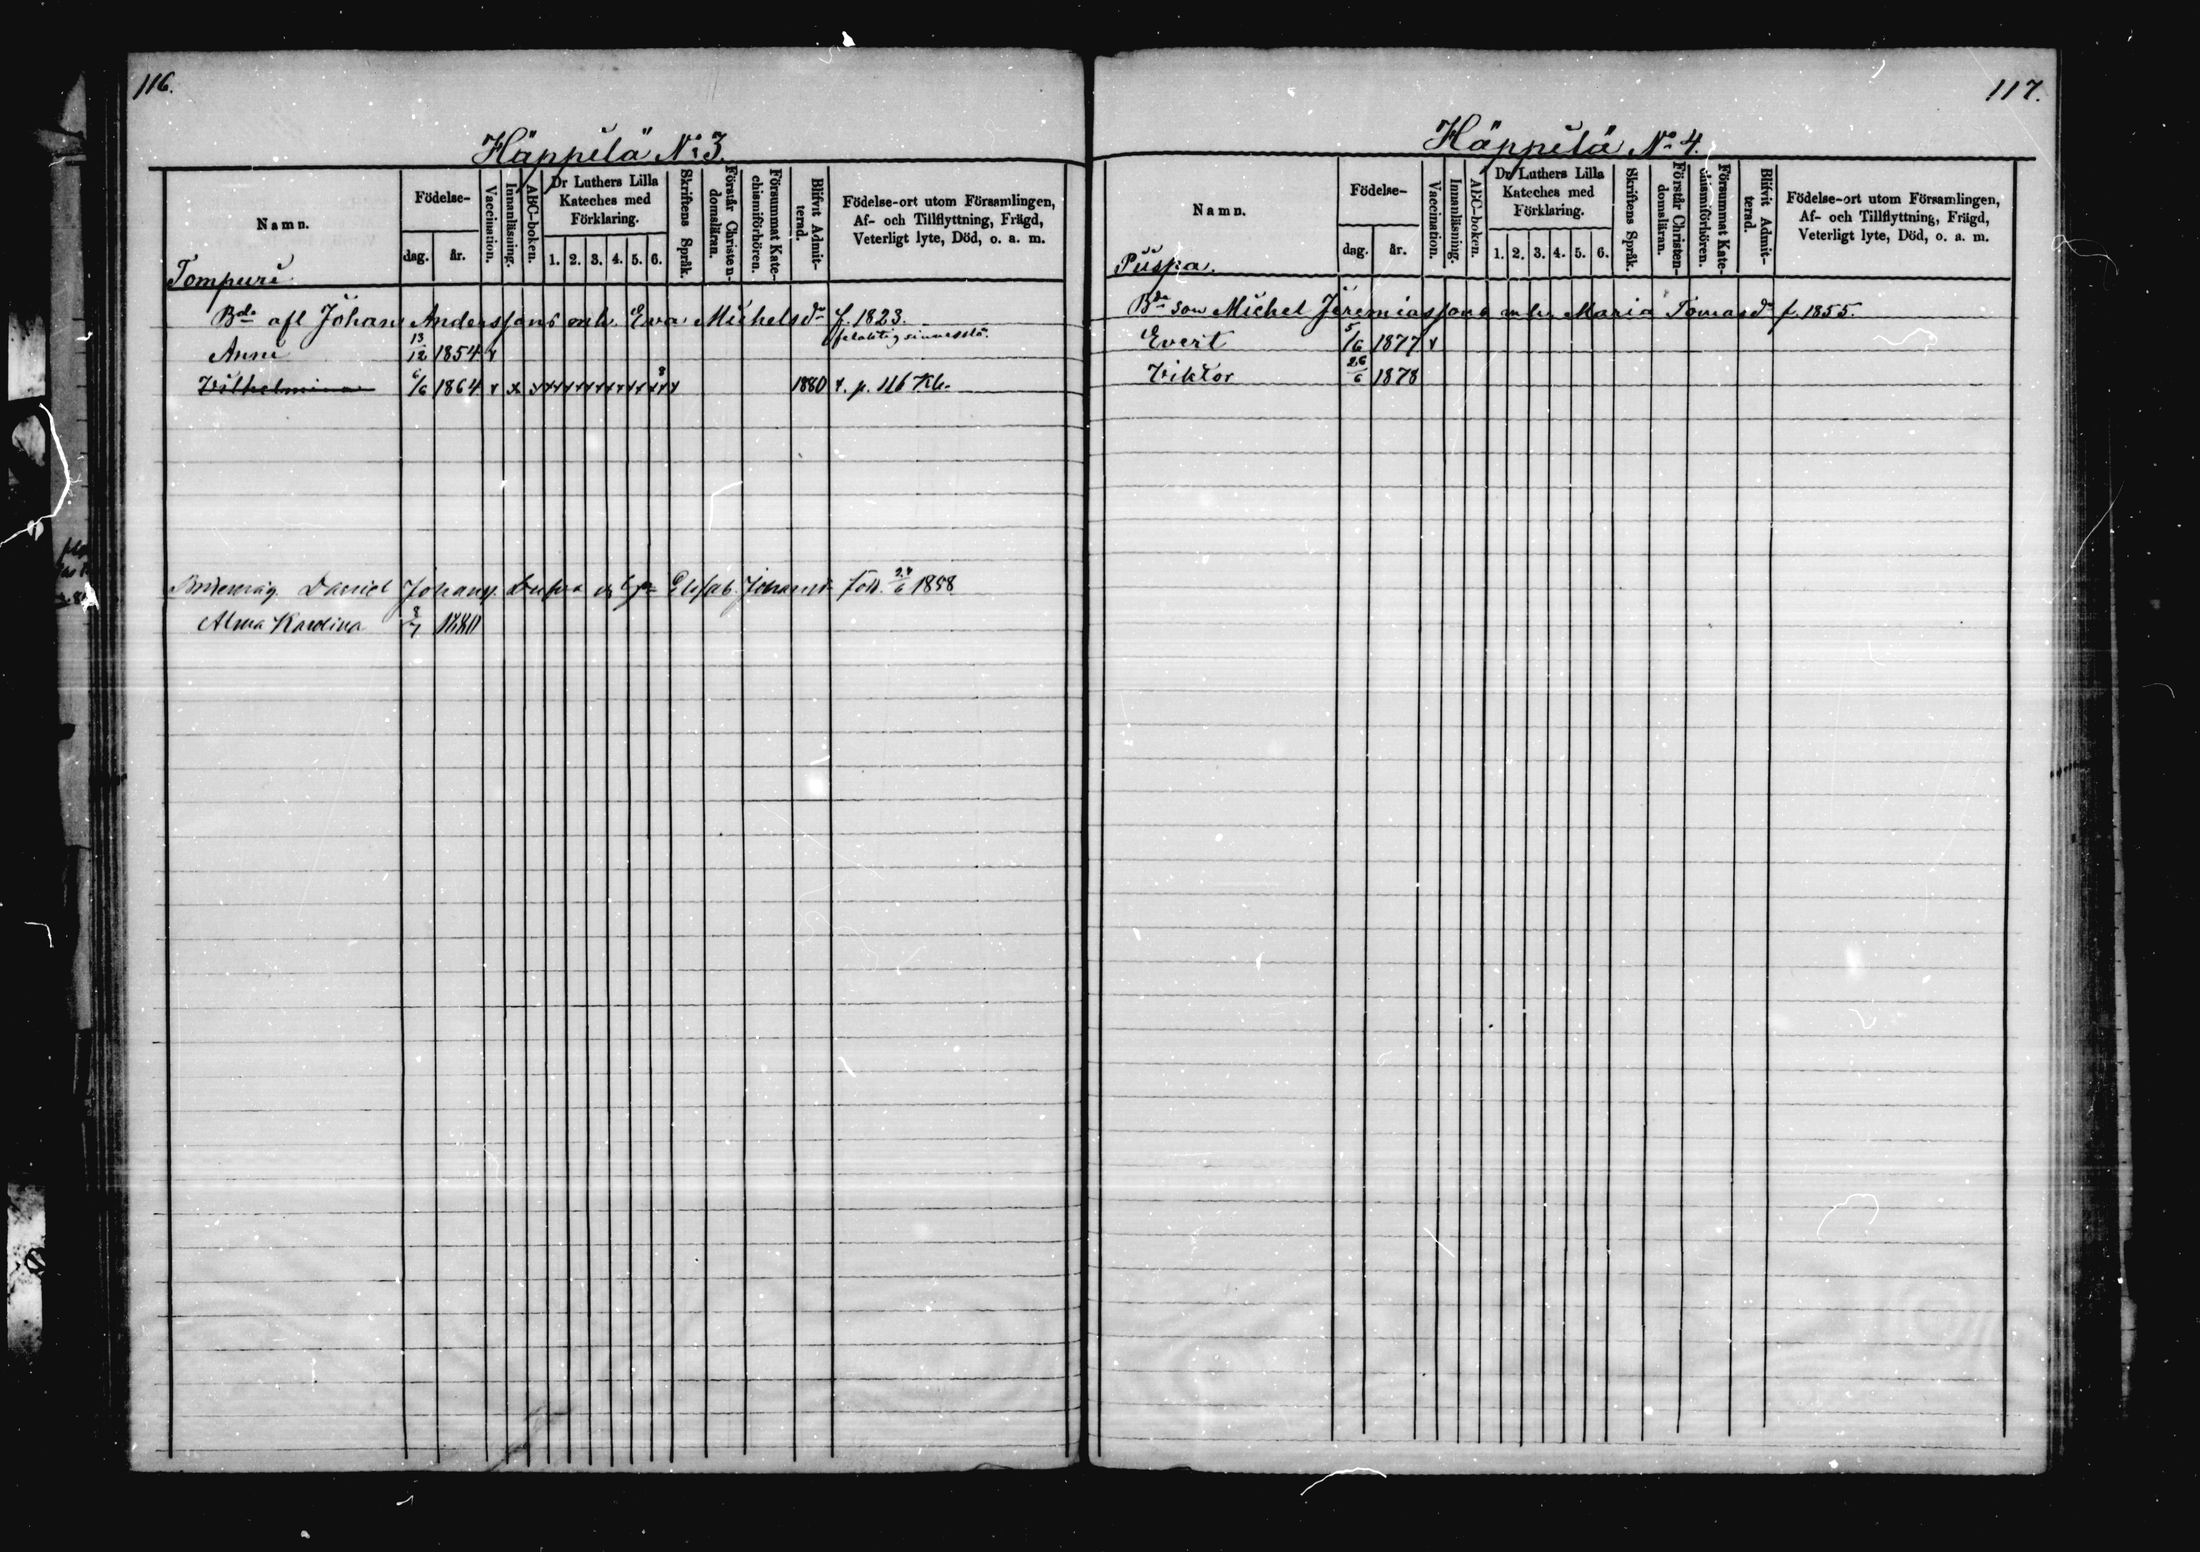 116.
Häppilä № 3.
Namn.
Födelse-
dag.
år.
Vaccination.
Innanläsning.
ABC-boken.
Dr Luthers Lilla Kateches med Förklaring.
1. 2. 3. 4. 5. 6.
Skriftens Språk.
Förstår Christendomsläran.
Försummat Katechismiförhören.
Blifvit Admitterad.
Födelse-ort utom Församlingen,
Af- och Tillflyttning, Frägd,
Veterligt lyte, Död, o. a. m.
Tompuri
Bde afl Johan Anderssons enk. Eva Michelsdr f. 1823.
Anni 13/12 1854
Vilhelmina 6/6 1864 1880 p. 116 Kb.
Daniel Johans. Elisab. Johansd. född 1858
Alma Karolina 8/7 1880
117.
Häppilä № 4.
Namn.
Födelse-
dag.
år.
Vaccination.
Innanläsning.
ABC-boken.
Dr Luthers Lilla Kateches med Förklaring.
1. 2. 3. 4. 5. 6.
Skriftens Språk.
Förstår Christendomsläran.
Försummat Katechismiförhören.
Blifvit Admitterad.
Födelse-ort utom Församlingen,
Af- och Tillflyttning, Frägd,
Veterligt lyte, Död, o. a. m.
Puspa.
Bde son Michel Jeremiassons Maria Tomasdr f. 1855.
Evert 5/6 1877
Viktor 26/6 1878